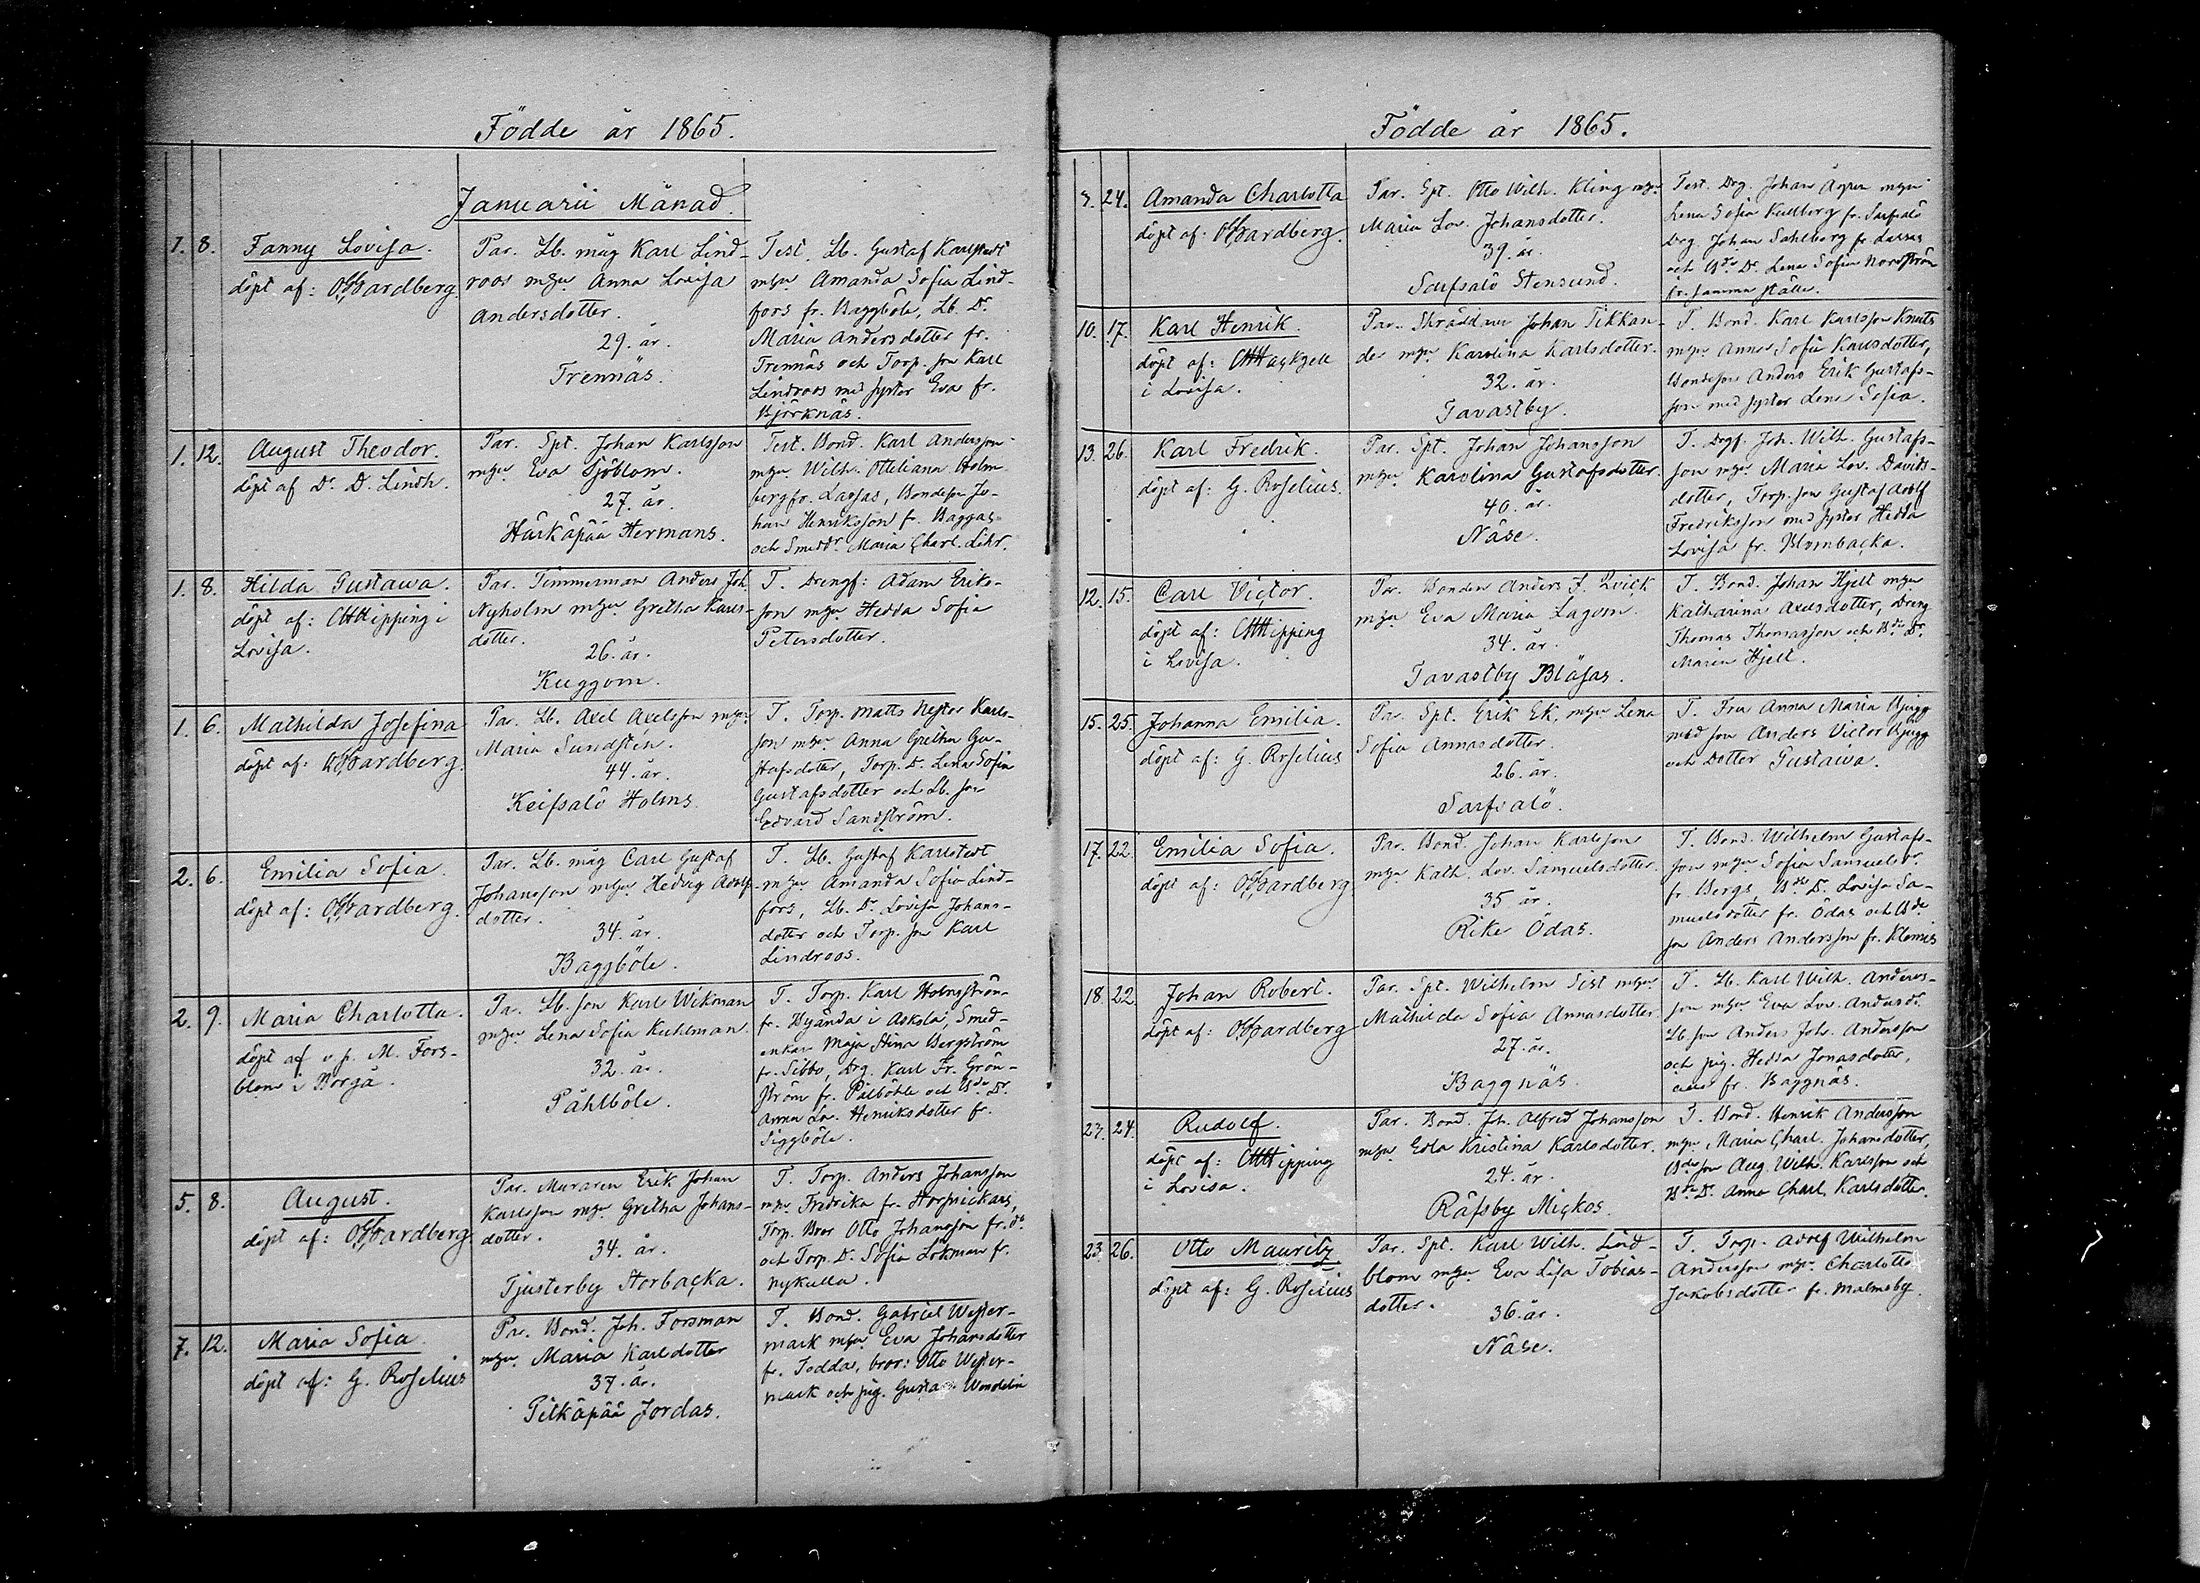 Födde år 1865.
Januarii Månad.
1. 8. Fanny Lovisa.
döpt af: Hardberg.
Par. Lb. måg Karl Lind-
roos m hu Anna Lovisa
Andersdotter.
29. år.
Trennäs.
Test. Lb. Gustaf Karlstedt
m hu Amanda Sofia Lind-
fors fr. Baggböle, Lb. Dr.
Maria Andersdotter fr.
Trennäs och Torp. son Karl
Lindroos med syster Eva fr.
Björknäs.
1. 12. August Theodor.
döpt af Dr. D. Lindh.
Par. Spt. Johan Karlsson
m hu Eva Sjöblom.
27. år.
Härkäpää Hermans.
Test. Bond. Karl Andersson
m hu Wilh. Otteliana Holm
berg fr. Lassas, Bondeson Jo-
han Henriksson fr. Baggas
och Smeddr. Maria Charl. Lihr.
1. 8. Hilda Gustawa.
döpt af: Hipping i
Lovisa.
Par. Timmerman Anders Joh.
Nyholm m hu Gretha Karls-
dotter.
26. år.
Kuggom.
T. Drengf: Adam Eriks-
son m hu Hedda Sofia
Petersdotter.
1. 6. Mathilda Josefina
döpt af: Hardberg.
Par. Lb. Axel Axelsson m hu
Maria Sundstén.
44. år.
Keifsalö Holms
T. Torp. Matts Nestor Karls-
son m hu Anna Gretha Gu-
stafsdotter, Torp. Dr. Lena Sofia
Gustafsdotter och Lb. son
Edvard Sandström.
2. 6. Emilia Sofia.
döpt af: Hardberg.
Par. Lb. måg Carl Gustaf
Johansson m hu Hedvig Adolfs
dotter.
34. år.
Baggböle.
T. Lb. Gustaf Karlstedt
m hu Amanda Sofia Lind-
fors, Lb. Dr. Lovisa Johans-
dotter och Torp. son Karl
Lindroos.
2. 9. Maria Charlotta.
döpt af v. p. M. Fors-
blom i Borgå.
Pa. Lb. son Karl Wikman
m hu Lena Sofia Kuhlman
32. år.
Påhlböle.
T. Torp. Karl Holmström
fr. i Askola, Smed-
enkan Maja Stina Bergström
fr. Sibbo, Drg. Karl Fr. Grön-
ström fr. Pålböhle och Bde Dr.
Anna Lov. Henriksdotter fr.
Siggböle.
5. 8. August.
döpt af: Hardberg
Par. Muraren Erik Johan
Karlsson m hu Gretha Johans-
dotter.
34. år.
Tjusterby Storbacka.
T. Torp. Anders Johansson
m hu Fredrika fr. Horsnickars,
Torp. Bror Otto Johansson fr. do
och Torp. Dr. Sofia Lökman fr.
Nykulla.
7. 12. Maria Sofia.
döpt af: G. Roselius
Par. Bond. Joh. Forsman
m hu Maria Karlsdotter
37. år.
Pitkäpää Jordas.
T. Bond. Gabriel Wester-
mark m hu Eva Johansdotter
fr. Todda, bror: Otto Wester-
mark och pig. Gustava Wendelin
Födde år 1865.
24. Amanda Charlotta
döpt af: Hardberg.
Par. Spt. Otto Wilh. Kling m hu
Maria Lov. Johansdotter.
39. år.
Sarfsalö Stensund.
Test. Drg. Johan Ågren m hu
Lena Sofia Kullberg fr. Sarfsalö
Drg. Johan Sahlberg fr Lassas
och Bde Dr. Lena Sofia Nordström
fr. samma ställe.
10. 17. Karl Henrik.
döpt af:
i Lovisa.
Par. Skräddare Johan Tikkan-
der m hu Karolina Karlsdotter.
32. år.
Tavastby.
T. Bond. Karl Karlsson Knuts
m hu Anna Sofia Karlsdotter,
Bondeson Anders Erik Gustafs-
son med syster Lena Sofia.
13. 26. Karl Fredrik.
döpt af: G. Roselius.
Par. Spt. Johan Johansson
m hu Karolina Gustafsdotter.
40. år.
Näse.
T. Drgf. Joh. Wilh. Gustafs-
son m hu Maria Lov. Davids-
dotter, Torp. son Gustaf Adolf
Fredriksson med syster Hedda
Lovisa fr. Blombacka.
12. 15. Carl Victor.
döpt af: Hipping
i Lovisa.
Par. Bonden Anders J. Qvick
m hu Eva Maria Lagom.
34. år.
Tavastby Blåsas.
T. Bond. Johan Hjelt m hu
Katharina Axelsdotter, Dreng
Thomas Thomasson och Bde Dr.
Maria Hjelt.
15. 25. Johanna Emilia.
döpt af: G. Roselius
Par. Spt. Erik Ek, m hu Lena
Sofia Annasdotter.
26. år.
Sarfsalö.
T. Fru Anna Maria Bjugg
med son Anders Victor Bjugg
och Dotter Gustawa.
17. 22. Emilia Sofia.
döpt af: Hardberg
Par. Bond. Johan Karlsson
m hu Kath. Lov. Samuelsdotter.
35 år.
Rike Ödas.
T. Bond. Wilhelm Gustafs-
son m hu Sofia Samuelsdr.
fr. Bergs, Bde Dr. Lovisa Sa-
muelsdotter fr. Ödas och Bde
son Anders Andersson fr. Klemis
18. 22. Johan Robert.
döpt af: Hardberg
Par. Spt. Wilhelm Sist m hu
Mathilda Sofia Annasdotter
27. år.
Baggnäs.
T. Lb. Karl Wilh. Anders-
son m hu Eva Lov. Andersdr.
Lb son Anders Joh. Andersson
och pig. Hedda Jonasdotter,
alla fr. Baggnäs.
23. 24. Rudolf.
döpt af: Hipping
i Lovisa.
Par. Bond. Joh. Alfred Johansson
m hu Edla Kristina Karlsdotter.
24. år.
Räfsby Mickos.
T. Bond. Henrik Andersson
m hu Maria Charl. Johansdotter,
Bde son Aug. Wilh. Karlsson och
Bde Dr. Anna Charl. Karlsdotter.
23. 26. Otto Mauritz
döpt af: G. Roselius
Par. Spt. Karl Wilh. Lind-
blom m hu Eva Lisa Tobias-
dotter.
36. år.
Näse.
T. Torp. Adolf Wilhelm
Andersson m hu Charlotta
Jakobsdotter fr. Malmsby.